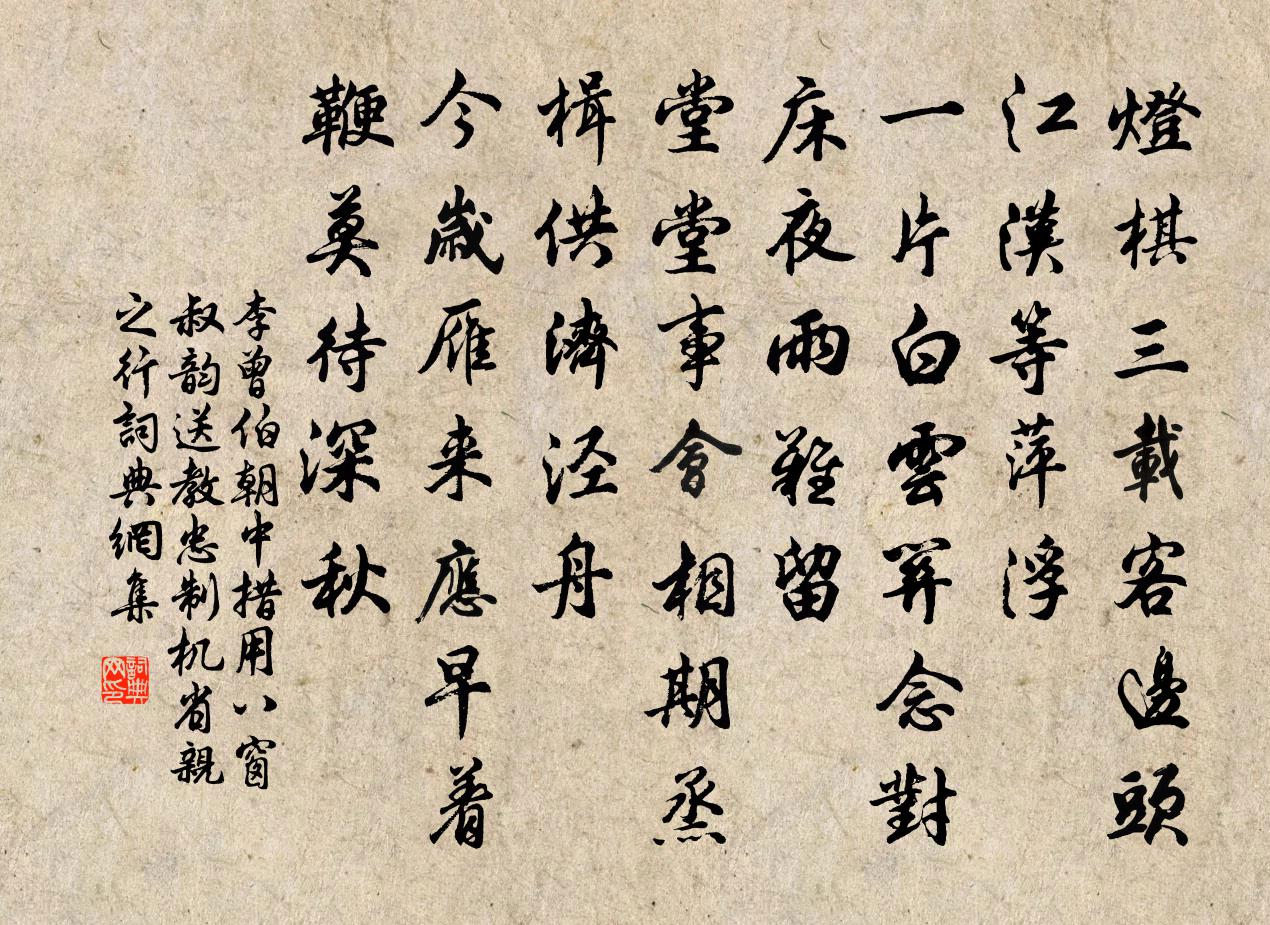 燈棋三載客邊頭
江漢等萍浮
一片白雲羿念對
床夜雨難留
堂堂堂事會相期烝
楫供濟泾舟
今歲雁来應早着
鞭莫待深秋
李曾伯朝中措用八窗
叔韵送教忠制机省親
之行詞典網集
詞典网印